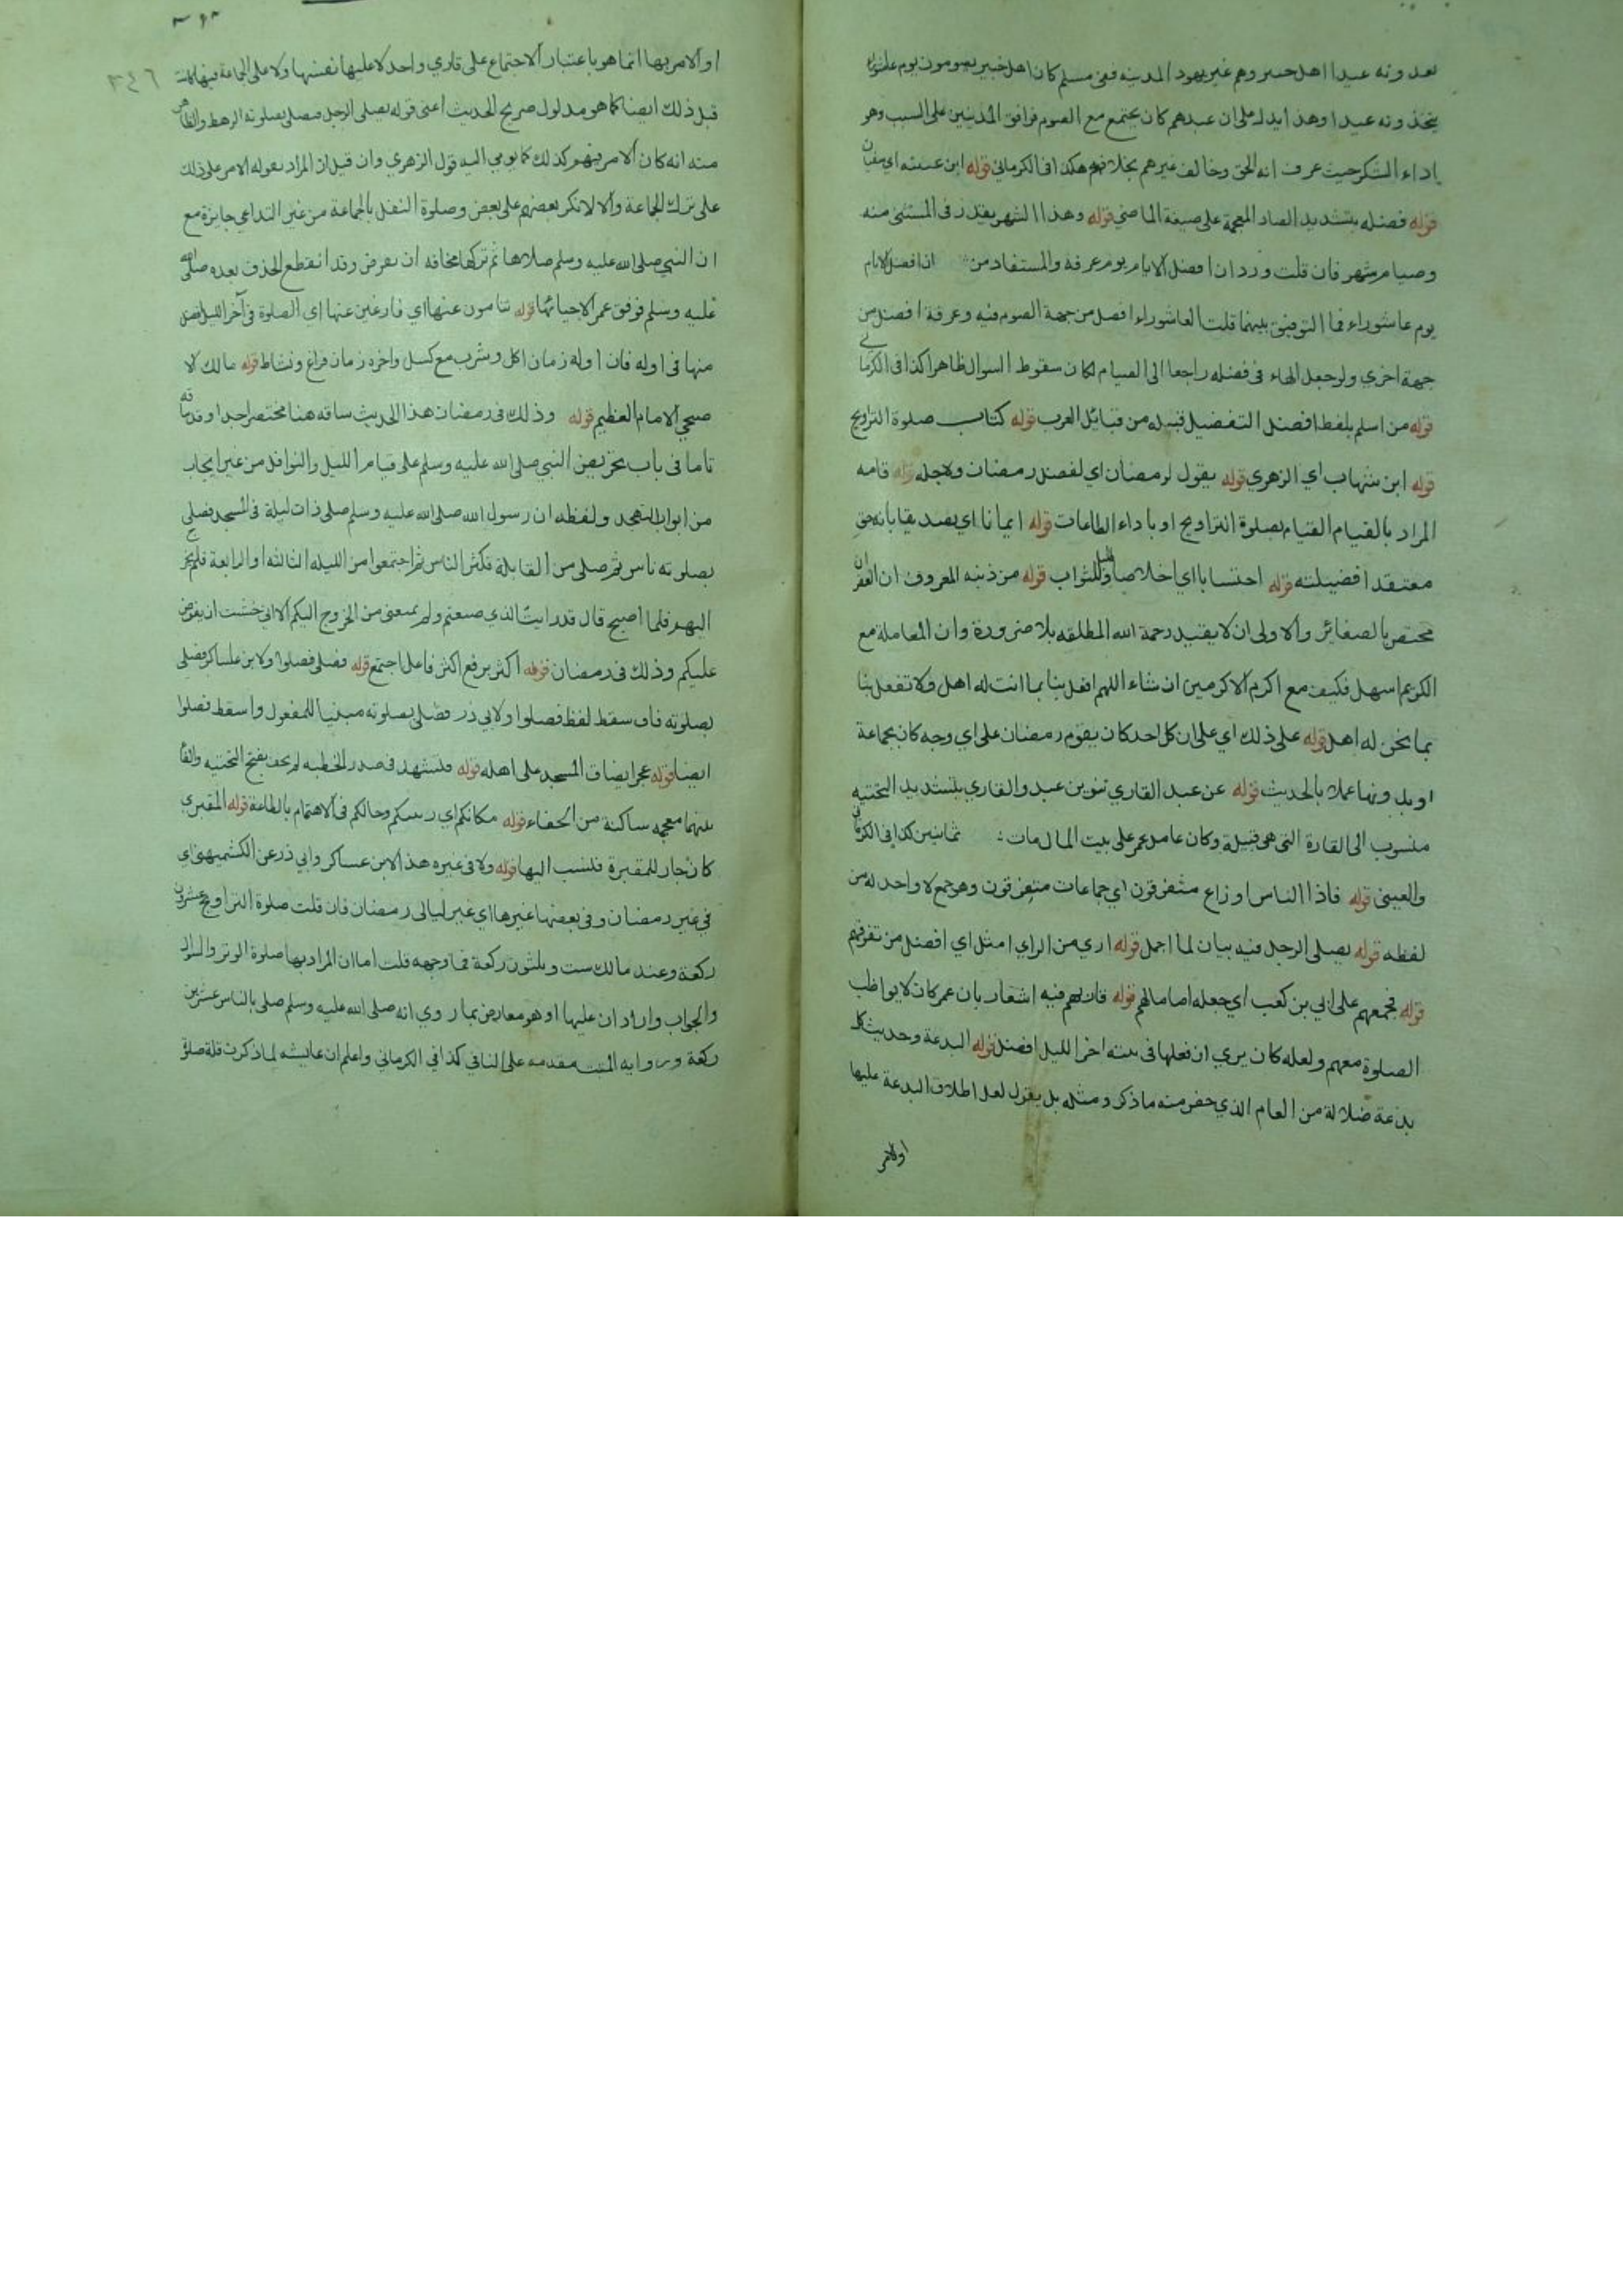 تعده وته عيدا اهل خيبر وهم غير يهود المدينه ففي مسلم كان اهل خيبر يصومون يوم عاشوراء
يتخذونه عيدا وهذا يدل على ان عيدهم كان يجتمع مع الصوم فوافق المدنيين على السبب وهو
اداء الشكر حيث عرف انه الحق وخالف غيرهم بخلافهم هكذا في الكرماني قوله ابن عيينه اي سفيان
قوله فضله بتشديد الضاد المعجمة على صيغة الماضي قوله وهذا الشهر يقدر في المستثنى منه
وصيام شهر فان قلت ورد ان افضل الايام يوم عرفة والمستفاد من ان افضل الايام
يوم عاشوراء فما التوفيق بينهما قلت العاشوراء افضل من جهة الصوم فيه وعرفة افضل من
جهة اخري ولو جعل الهاء في فضله راجعا الى الصيام لكان سقوط السوال ظاهرا كذا في الكرماني
قوله من اسلم بلفظ افضل التفضيل قبيله من قبائل العرب قوله كتاب صلوة التراويح
قوله ابن شهاب اي الزهري قوله يقول لرمضان اي لفضل رمضان ولاجله قوله قامه
المراد بالقيام القيام بصلوة التراويح او باداء الطاعات قوله ايمانا اي تصديقا بانه حق
معتقدا فضيلته قوله احتسابا اي اخلاصا وطلبا للثواب قوله من ذنبه المعروف ان الغفران
مختص بالصغائر والاولى ان لا يقتيد رحمة الله المطلقه بلا ضرورة وان المعاملة مع
الكريم اسهل فكيف مع اكرم الاكرمين ان شاء اللهم افعل بنا بما انت له اهل ولا تفعل بنا
بما نحن له اهل قوله على ذلك اي على ان كل احد كان يقوم رمضان على اي وجه كان بجماعة
او بدونها عملا بالحديث قوله عن عبد القاري تنوين عبد والقاري بتشديد التحتيه
منسوب الى القارة التي هي قبيلة وكان عامل عمر على بيت المال مات : ثمانين كذا في الكرماني
والعيني قوله فاذا الناس اوزاع متفرقون اي جماعات متفرقون وهو جمع لا واحد له من
لفظه قوله يصلى الرجل فيه بيان لما اجمل قوله اري من الراي امثل اي افضل من تفرقهم
قوله فجمعهم على ابي بن كعب اي جعله اماما لهم قوله قاربهم فيه اشعار بان عمر كان لا يواظب
الصلوة معهم ولعله كان يري ان فعلها في بيته اخر الليل افضل قوله البدعة وحديث كل
بدعة ضلالة من العام الذي خص منه ما ذكر ومثله بل يقول لعل اطلاق البدعة عليها
اولامر
٣٤٦
او الامر بها انما هو باعتبار الاجتماع على قاري واحد لا عليها نفسها ولا على الجماعة فيها كانت
قبل ذلك ايضا كما هو مدلول صريح الحديث اعنى قوله يصلى الرجل فيصلى بصلوته الرهط والظاهر
منه انه كان الامر بينهم كذلك كما يومي اليه قول الزهري وان قيل ان المراد بقوله الامر على ذلك
على ترك الجماعة والا لانكر بعضهم على بعض وصلوة النفل بالجماعة من غير التداعي جايزة مع
ان النبي صلى الله عليه وسلم صلاها ثم تركها مخافة ان تفرض وقد انقطع الحذف بعده صلى الله
عليه وسلم فوفق عمر لاحيائها قوله تنامون عنها اي فارغين عنها اى الصلوة في آخر الليل افضل
منها في اوله فان اوله زمان اكل وشرب مع كسل واخره زمان فراغ ونشاط قوله مالك لا
صبحي الامام العظيم قوله وذلك في رمضان هذا الحديث ساقه هنا مختصر جدا وقد ساقه
تاما في باب تحريض النبي صلى الله عليه وسلم على قيام الليل والنوافل من غير ايجاب
من ابواب التهجد ولفظه ان رسول الله صلى الله عليه وسلم صلى ذات ليلة في المسجد فصلى
بصلوته ناس ثم صلى من القابلة فكثر الناس ثم اجتمعوا من الليله الثالثه او الرابعة فلم يخرج
اليهم فلما اصبح قال قد رايت الذي صنعتم ولم يمنعني من الخروج اليكم الا اني خشيت ان يفرض
عليكم وذلك في رمضان قوله اكثر برفع اكثر فاعل اجتمع قوله فصلى فصلوا ولابن عساكر فصلى
بصلوته فاسقط لفظ فصلوا ولابي ذر فصلى بصلوته مبنيا للمفعول واسقط فصلوا
ايضا قوله عجز ايضاق المسجد على اهله قوله فتشهد في صدر الخطبه لم يخف بفتح التحتيه والفا
بينهما معجمه ساكنة من الخفاء قوله مكانكم اي رتبتكم وحالكم في الاهتمام بالطاعة قوله المقبرى
كان جار للمقبرة فنسب اليها قوله ولا في غيره هذا لابن عساكر وابي ذر عن الكشميهني اي
في غير رمضان وفي بعضها غيرها اي غير ليالى رمضان فان قلت صلوة التراويح عشرون
ركعة وعند مالك ست وثلثون ركعة فما وجهه قلت اما ان المراد بها صلوة الوتر والسوال
والجواب واردان عليها او هو معارض بما روي انه صلى الله عليه وسلم صلى بالناس عشرين
ركعة وروايه المثبت مقدمه على النافي كذا في الكرماني واعلم ان عايشه لما ذكرت قلة صلوة